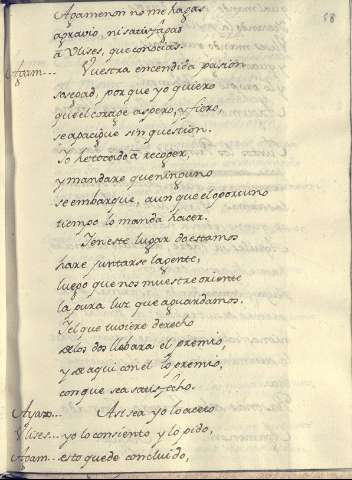 58
Agamenon no me hagas
agravio, ni satisfagas
â Ulises, que conocias.
Agam... Vuestra encendida pasion
sosegad, porque yo quiero
que el corage aspero, y fiero,
se apacigue sin question.
Yo he tocado â recoger,
y mandare que ninguno
se embarque, aunque el oportuno
tiempo lo manda hacer.
Y en este lugar do estamos
hare juntarse la gente,
luego que nos muestre oriente
la pura luz que aguardamos.
Y el que tuviere derecho
de los dos llebara el premio,
y de aqui con el lo premio,
con que sea satisfecho.
Ayax... Asi sea yo lo aceto
Ulises... yo lo consiento y lo pido,
Agam... esto quede concluido,